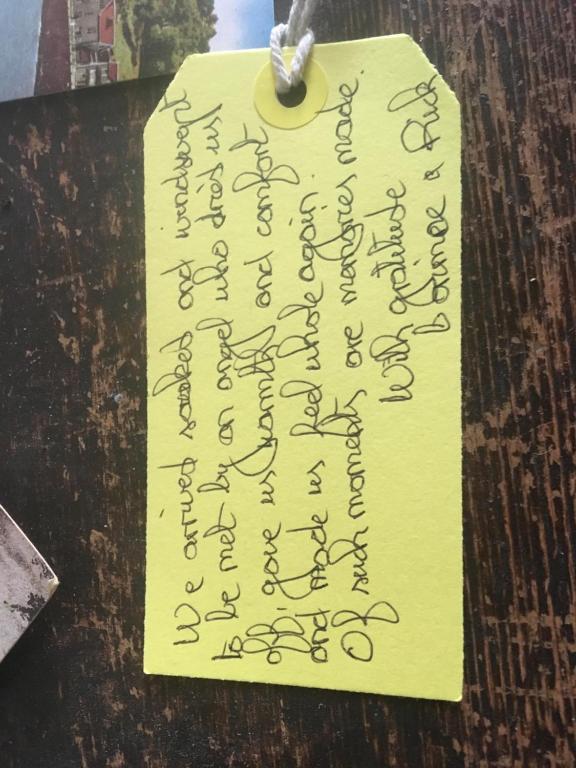 We arrived soaked and windswept
to be met by an angel who dried us
off, gave us warmth, and comfort
and made us feel whole again.
Of such moments are memories made.
With gratitude
Lorinee & Rick